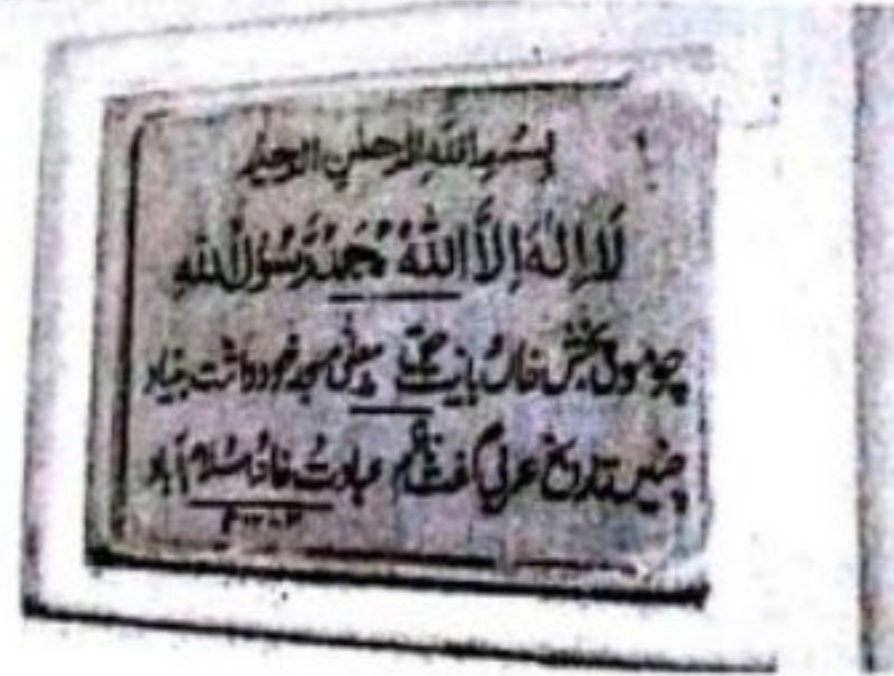 بِسْمِ اللهِ الرحمنِ الرحيم
لَا اِلٰهَ اِلَّا اللهُ مُحَمَّدٌ رَّسُوْلُ اللهِ
چو مولیٰ بخش خاں بانیت مسجد بنیاد
چنیں تاریخ عربی گفت ناظم عبادت خانہ اسلام آباد